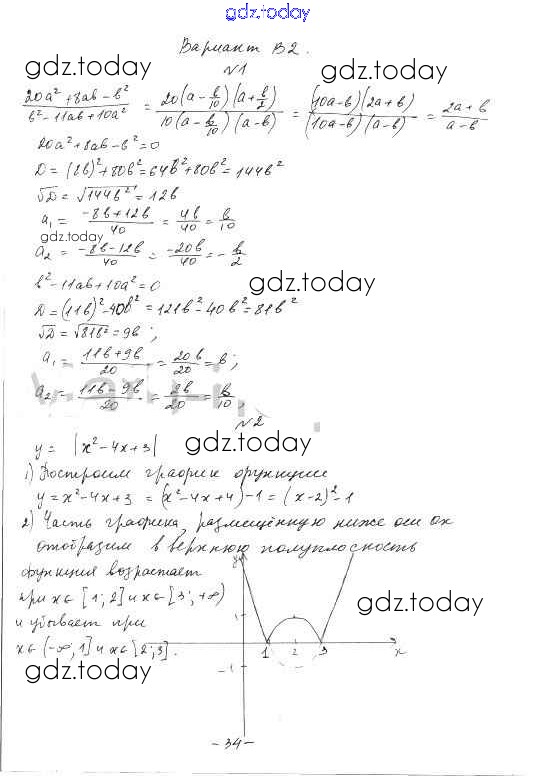 gdz.today
Вариант В2.
gdz.today gdz.today
№1
(20a² + 8ab - b²)/(b² - 11ab + 10a²) = (20(a - b/10)(a + b/2))/(10(a - b/10)(a - b)) = ((10a - b)(2a + b))/((10a - b)(a - b)) = (2a + b)/(a - b)
20a² + 8ab - b² = 0
D = (8b)² + 80b² = 64b² + 80b² = 144b²
√D = √144b² = 12b
a₁ = (-8b + 12b)/40 = 4b/40 = b/10
gdz.today
a₂ = (-8b - 12b)/40 = -20b/40 = -b/2
b² - 11ab + 10a² = 0
gdz.today
D = (11b)² - 40b² = 121b² - 40b² = 81b²
√D = √81b² = 9b;
a₁ = (11b + 9b)/20 = 20b/20 = b;
a₂ = (11b - 9b)/20 = 2b/20 = b/10;
№2
y = |x² - 4x + 3|
gdz.today
1) Построим график функции
y = x² - 4x + 3 = (x² - 4x + 4) - 1 = (x - 2)² - 1
2) Часть графика, размещённую ниже оси ох
отобразим в верхнюю полуплоскость
функция возрастает
при x ∈ [1; 2] и x ∈ [3; +∞)
и убывает при
x ∈ (-∞; 1] и x ∈ [2; 3].
y
1 2 3 x
-1
gdz.today
gdz.today
gdz.today
- 34 -